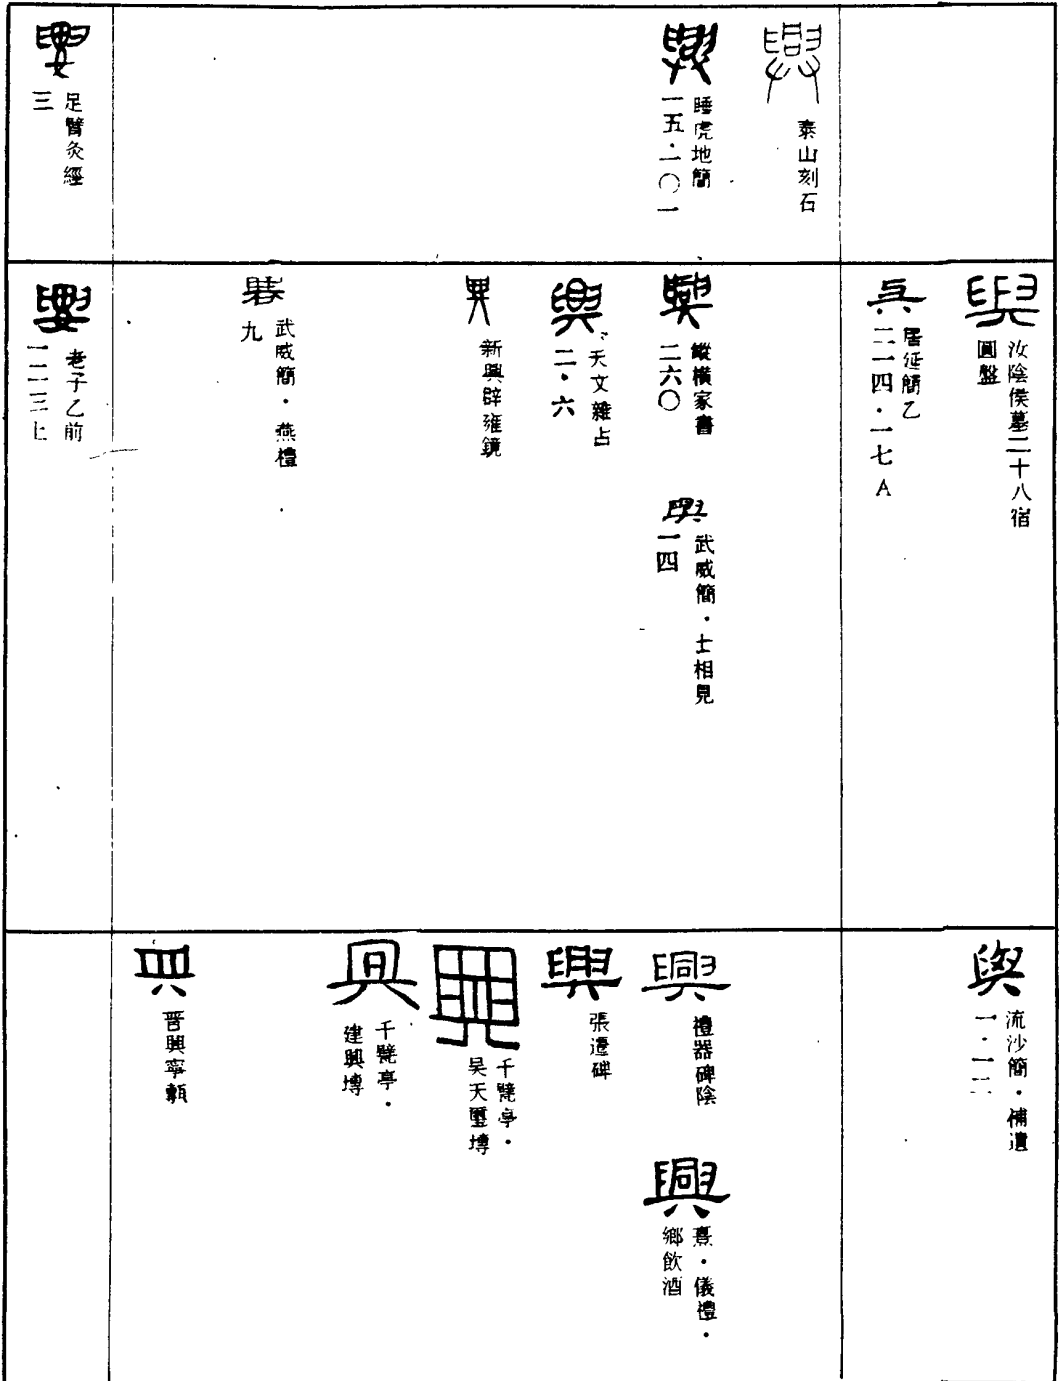 興
泰山刻石
興
睡虎地簡
一五·一〇一
要
足臂灸經
三
與
汝陰侯墓二十八宿
圓盤
與
居延簡乙
二一四·一七A
興
縱橫家書
二六〇
興
武威簡·士相見
一四
興
天文雜占
二·六
興
新興辟雍鏡
興
武威簡·燕禮
九
要
老子乙前
一二三上
與
流沙簡·補遺
一·一二
興
禮器碑陰
興
熹·儀禮·
鄉飲酒
興
張遷碑
興
千甓亭·
吳天璽塼
興
千甓亭·
建興塼
興
晉興寧